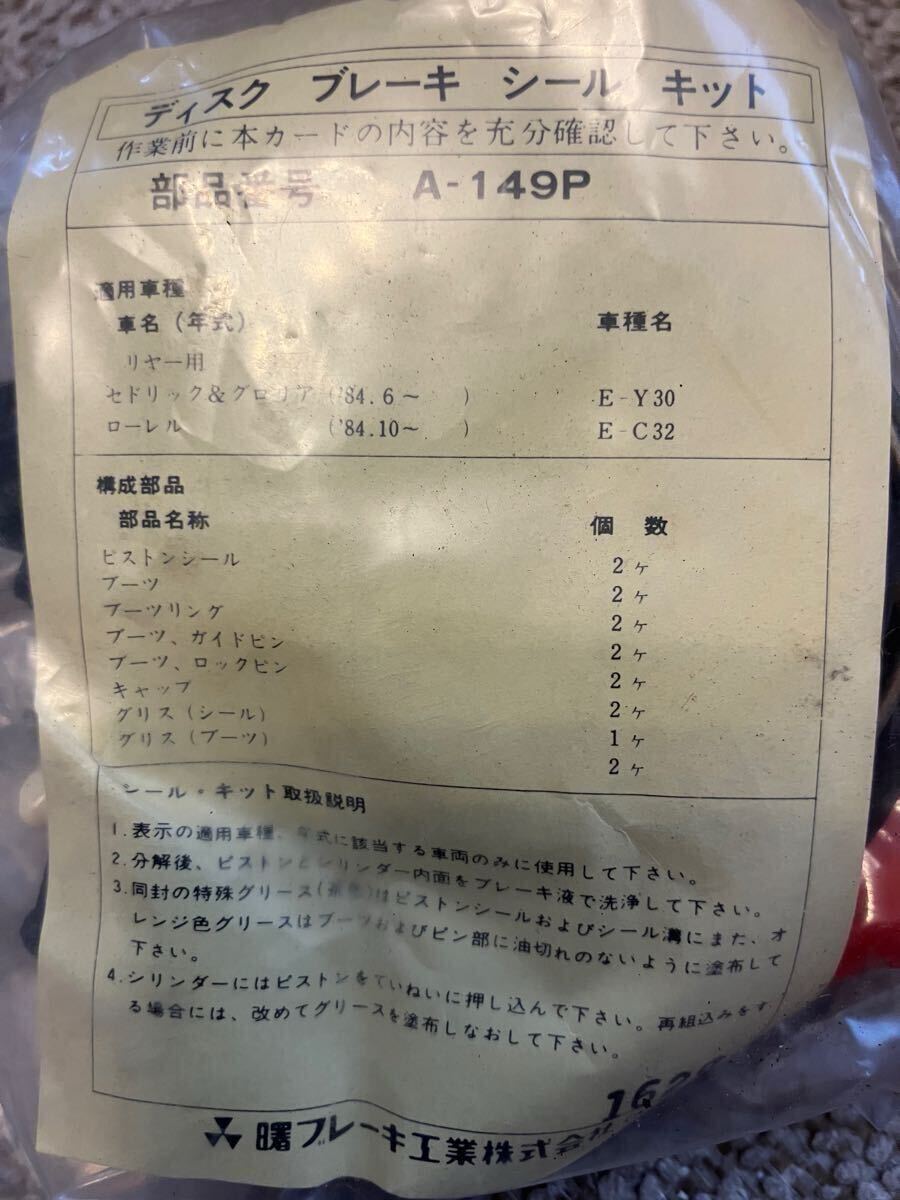 ディスク ブレーキ シール キット
作業前に本カードの内容を充分確認して下さい。
部品番号 A-149P
適用車種
車名（年式） 車種名
リヤー用
セドリック&グロリア ('84.6〜 ) E-Y30
ローレル ('84.10〜 ) E-C32
構成部品
部品名称 個数
ピストンシール 2ヶ
ブーツ 2ヶ
ブーツリング 2ヶ
ブーツ、ガイドピン 2ヶ
ブーツ、ロックピン 2ヶ
キャップ 2ヶ
グリス（シール） 1ヶ
グリス（ブーツ） 2ヶ
シール・キット取扱説明
1.表示の適用車種、年式に該当する車両のみに使用して下さい。
2.分解後、ピストンとシリンダー内面をブレーキ液で洗浄して下さい。
3.同封の特殊グリース()はピストンシールおよびシール溝にまた、オ
レンジ色グリースはブーツおよびピン部に油切れのないように塗布して
下さい。
4.シリンダーにはピストンをていねいに押し込んで下さい。再組込みをす
る場合には、改めてグリースを塗布しなおして下さい。
162
曙ブレーキ工業株式会